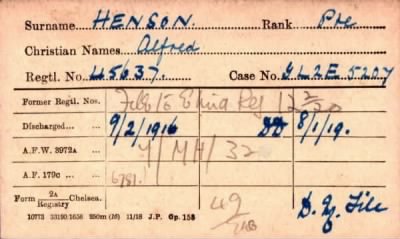 Surname HENSON. Rank Pte
Christian Names Alfred
Regtl. No. 45637. Case No. GL2E 5207
Former Regtl. Nos.
Discharged 9/2/1916 DD 8/1/19.
A.F.W. 3972A 4/MH/32
A.F. 179c 6781.
Form 2A Registry Chelsea. D. Z. File
10772 33190/1658 250m (16) 11/18 J.P. Gp. 158